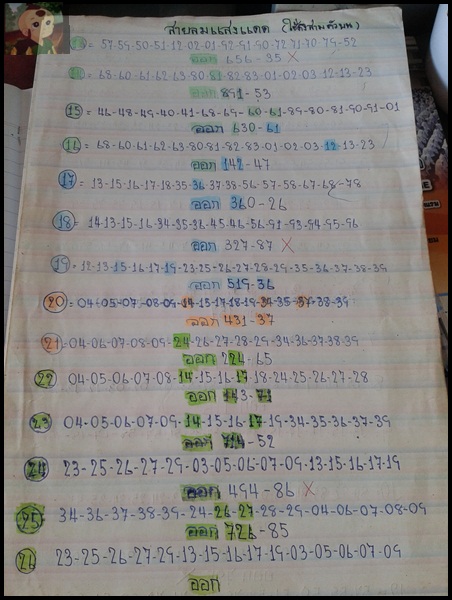 สายลมแสงแดด (ใช้ล่าง ตัวบน)
= 57-59-50-51-12-02-01-92-91-90-72-71-70-79-52
ออก 656-35 X
= 68-60-61-62-63-80-81-82-83-01-02-03-12-13-23
ออก 891-53
15 = 46-48-49-40-41-68-69-60-61-89-80-81-90-91-01
ออก 630-61
16 = 68-60-61-62-63-80-81-82-83-01-02-03-12-13-23
ออก 142-47
17 = 13-15-16-17-18-35-36-37-38-56-57-58-67-68-78
ออก 360-26
18 = 14-13-15-16-34-35-36-45-46-56-91-93-94-95-96
ออก 327-87 X
19 = 12-13-15-16-17-19-23-25-26-27-28-29-35-36-37-38-39
ออก 519-36
20 = 04-05-07-08-09-14-15-17-18-19-34-35-37-38-39
ออก 431-37
21 = 04-06-07-08-09-24-26-27-28-29-34-36-37-38-39
ออก 224-65
22 04-05-06-07-08-14-15-16-17-18-24-25-26-27-28
ออก 143-71
23 04-05-06-07-09-14-15-16-17-19-34-35-36-37-39
ออก 714-52
24 23-25-26-27-29-03-05-06-07-09-13-15-16-17-19
ออก 494-86 X
25 34-36-37-38-39-24-26-27-28-29-04-06-07-08-09
ออก 726-85
26 23-25-26-27-29-13-15-16-17-19-03-05-06-07-09
ออก